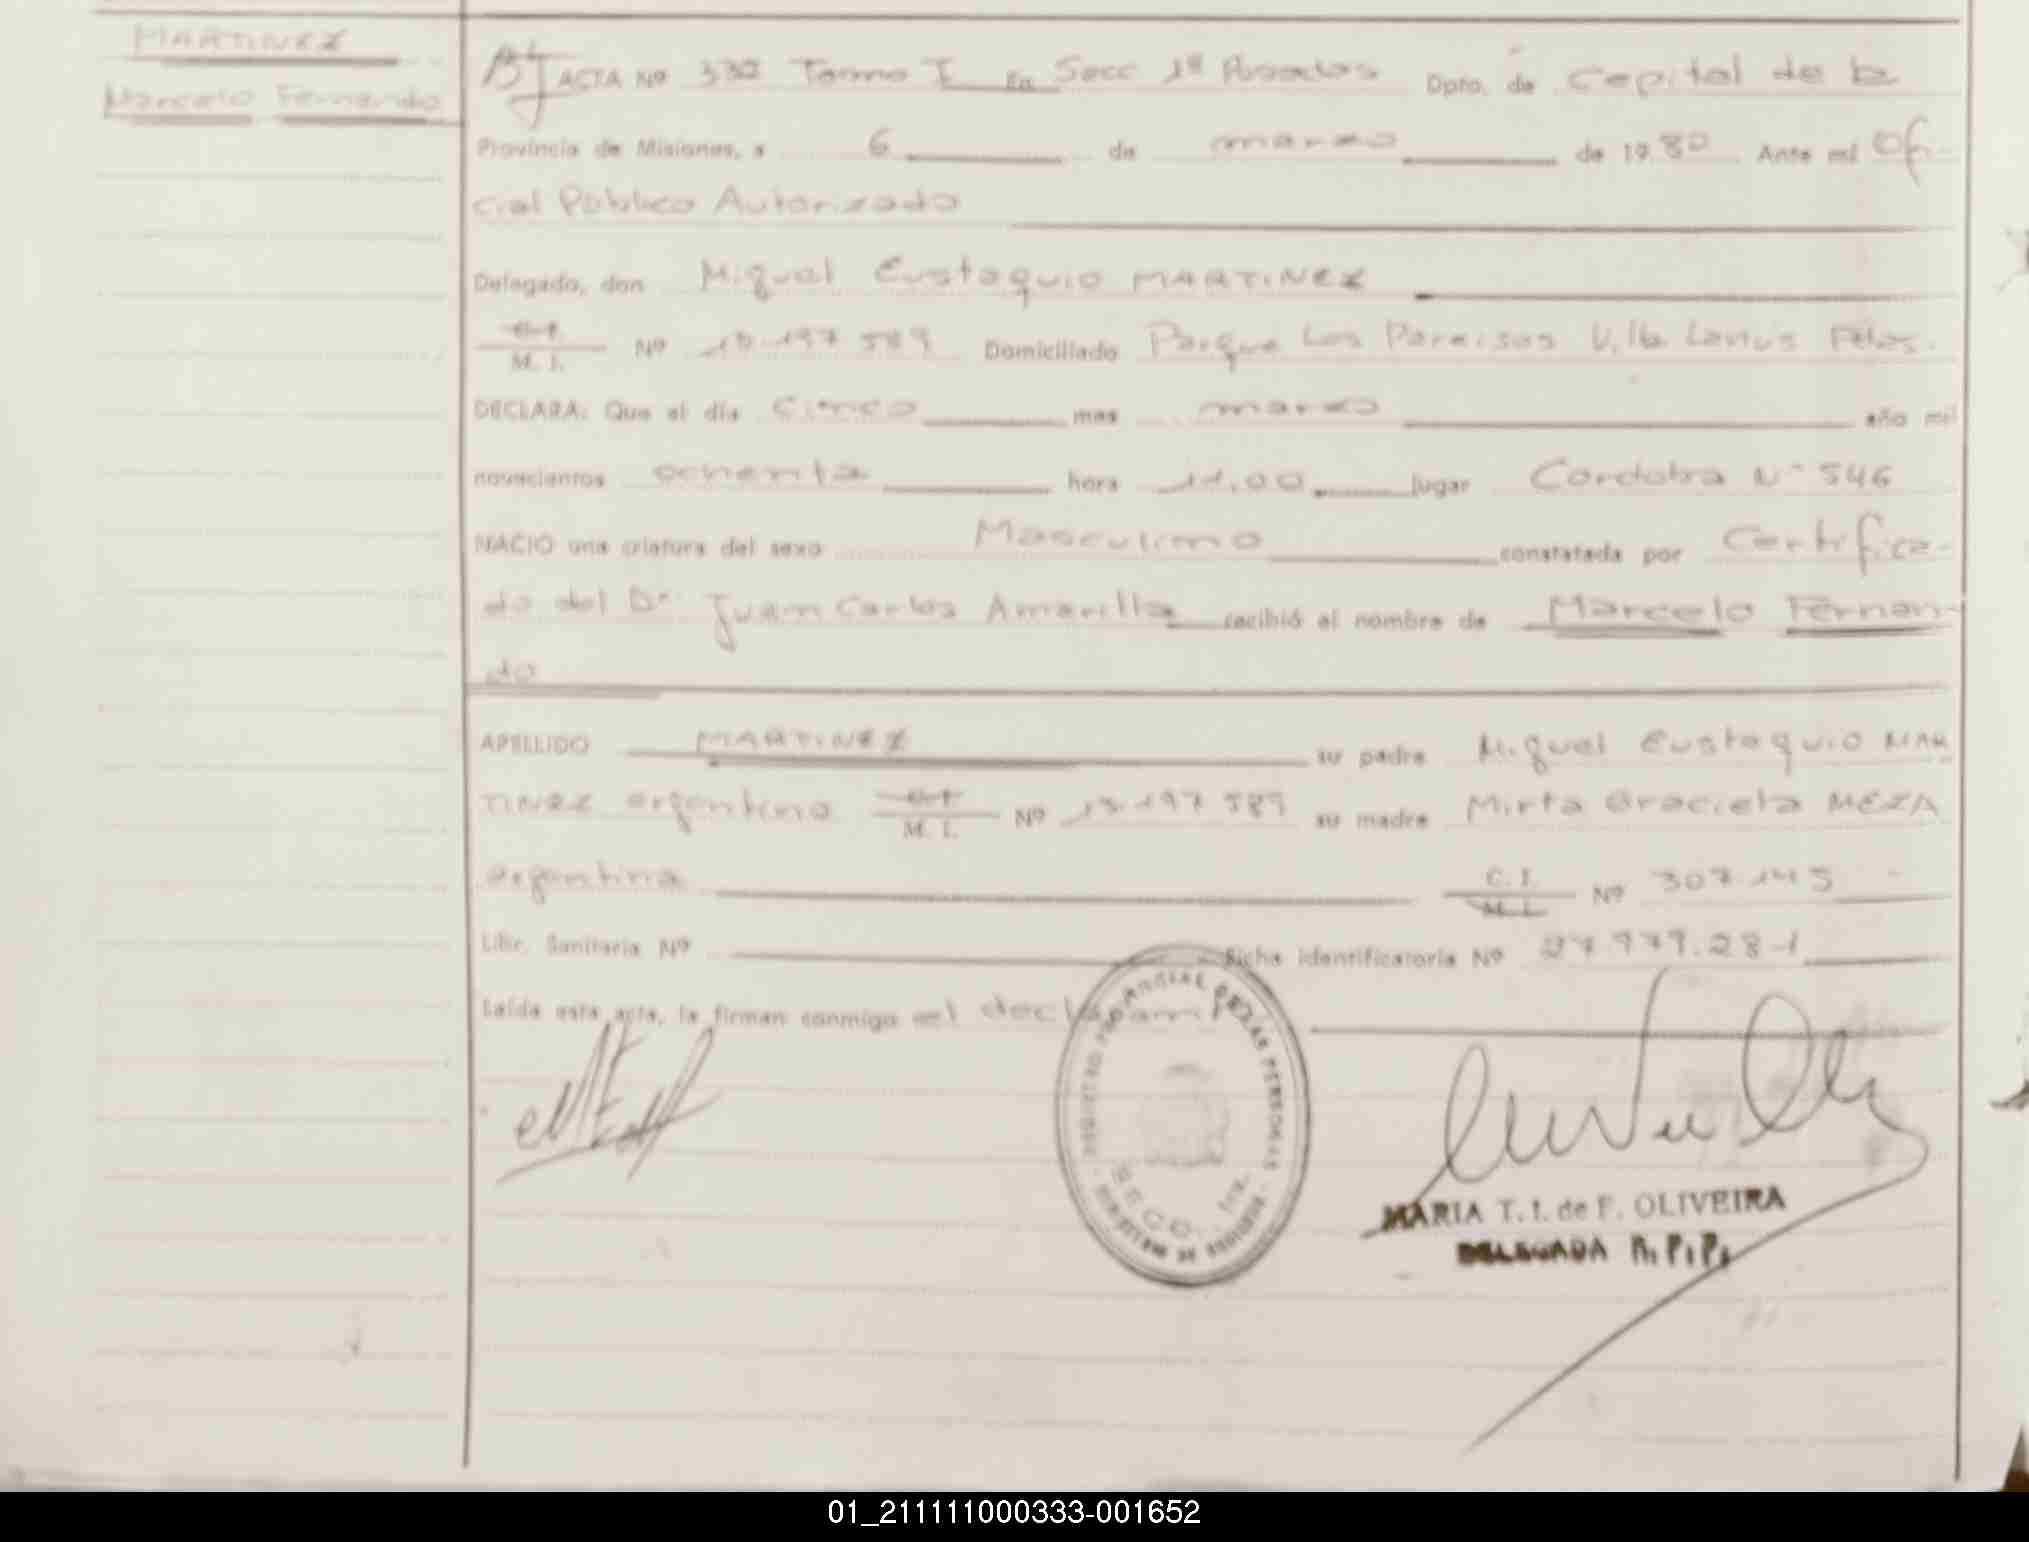 MARTINEZ
Marcelo Fernando
ACTA Nº 332 Tomo I En Secc 1ª Posadas Dpto. de Capital de la
Provincia de Misiones, a 6 de marzo de 1980 Ante mí Ofi-
cial Público Autorizado
Delegado, don Miguel Eustaquio MARTINEZ
C.I.
M. I. Nº 13.197.589 Domiciliado Parque Los Paraisos Villa Lanus Pdas.
DECLARA: Que el día Cinco mes marzo año mil
novecientos ochenta hora 11,00 lugar Cordoba Nº 546
NACIO una criatura del sexo Masculino constatada por Certifica-
do del Dr. Juan Carlos Amarilla recibió el nombre de Marcelo Fernan-
do
APELLIDO MARTINEZ su padre Miguel Eustaquio MAR
TINEZ argentino C.I.
M. I. Nº 13.197.589 su madre Mirta Graciela MEZA
argentina C. I.
M. I. Nº 307.145
Libr. Sanitaria Nº Ficha identificatoria Nº 27.979.281
Leída esta acta, la firman conmigo el declarante
REGISTRO PROVINCIAL DE LAS PERSONAS
SECC.
MARIA T. I. de F. OLIVEIRA
DELEGADA R. P. P.
01_211111000333-001652